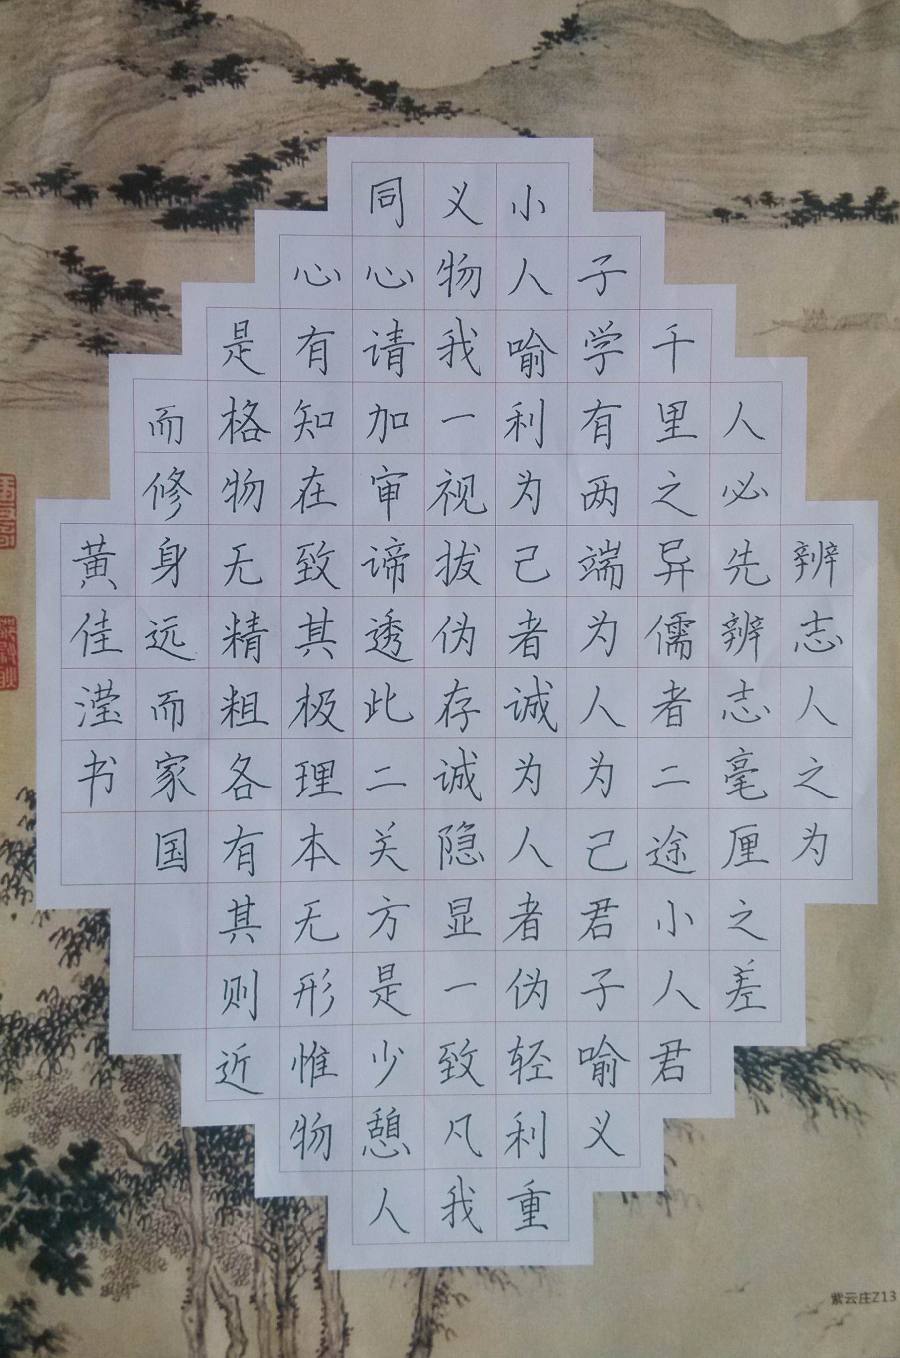 辨志人之为
人必先辨志毫厘之差
千里之异儒者二途小人君
子学有两端为人为己君子喻义
小人喻利为己者诚为人者伪轻利重
义物我一视拔伪存诚隐显一致凡我
同心请加审谛透此二关方是少憩人
心有知在致其极理本无形惟物
是格物无精粗各有其则近
而修身远而家国
黄佳滢书
紫云庄Z13